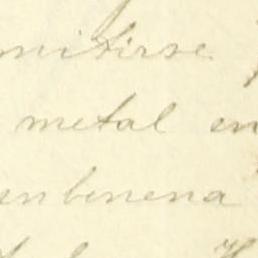 mitirse
metal en
enbenena